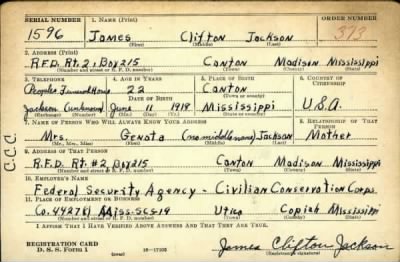 SERIAL NUMBER 1. NAME (Print) ORDER NUMBER
1596 James Clifton Jackson 373
(First) (Middle) (Last)
2. ADDRESS (Print)
R.F.D. Rt. 2, Box 215 Canton Madison Mississippi
(Number and street or R. F. D. number) (Town) (County) (State)
3. TELEPHONE 4. AGE IN YEARS 5. PLACE OF BIRTH 6. COUNTRY OF CITIZENSHIP
Peoples Funeral Home 22 Canton
DATE OF BIRTH (Town or county)
Jackson (unknown) June 11 1918 Mississippi U.S.A.
(Exchange) (Number) (Mo.) (Day) (Yr.) (State or country)
7. NAME OF PERSON WHO WILL ALWAYS KNOW YOUR ADDRESS 8. RELATIONSHIP OF THAT PERSON
Mrs. Genota (no middle name) Jackson Mother
(Mr., Mrs., Miss) (First) (Middle) (Last)
9. ADDRESS OF THAT PERSON
R.F.D. Rt. #2, Box 215 Canton Madison Mississippi
(Number and street or R. F. D. number) (Town) (County) (State)
10. EMPLOYER'S NAME
Federal Security Agency - Civilian Conservation Corps
11. PLACE OF EMPLOYMENT OR BUSINESS
Co. 4427(c) Miss-SCS19 Utica Copiah Mississippi
(Number and street or R. F. D. number) (Town) (County) (State)
I AFFIRM THAT I HAVE VERIFIED ABOVE ANSWERS AND THAT THEY ARE TRUE.
REGISTRATION CARD
D. S. S. Form 1 (over) 16-17105 James Clifton Jackson
(Registrant's signature)
C.C.C.